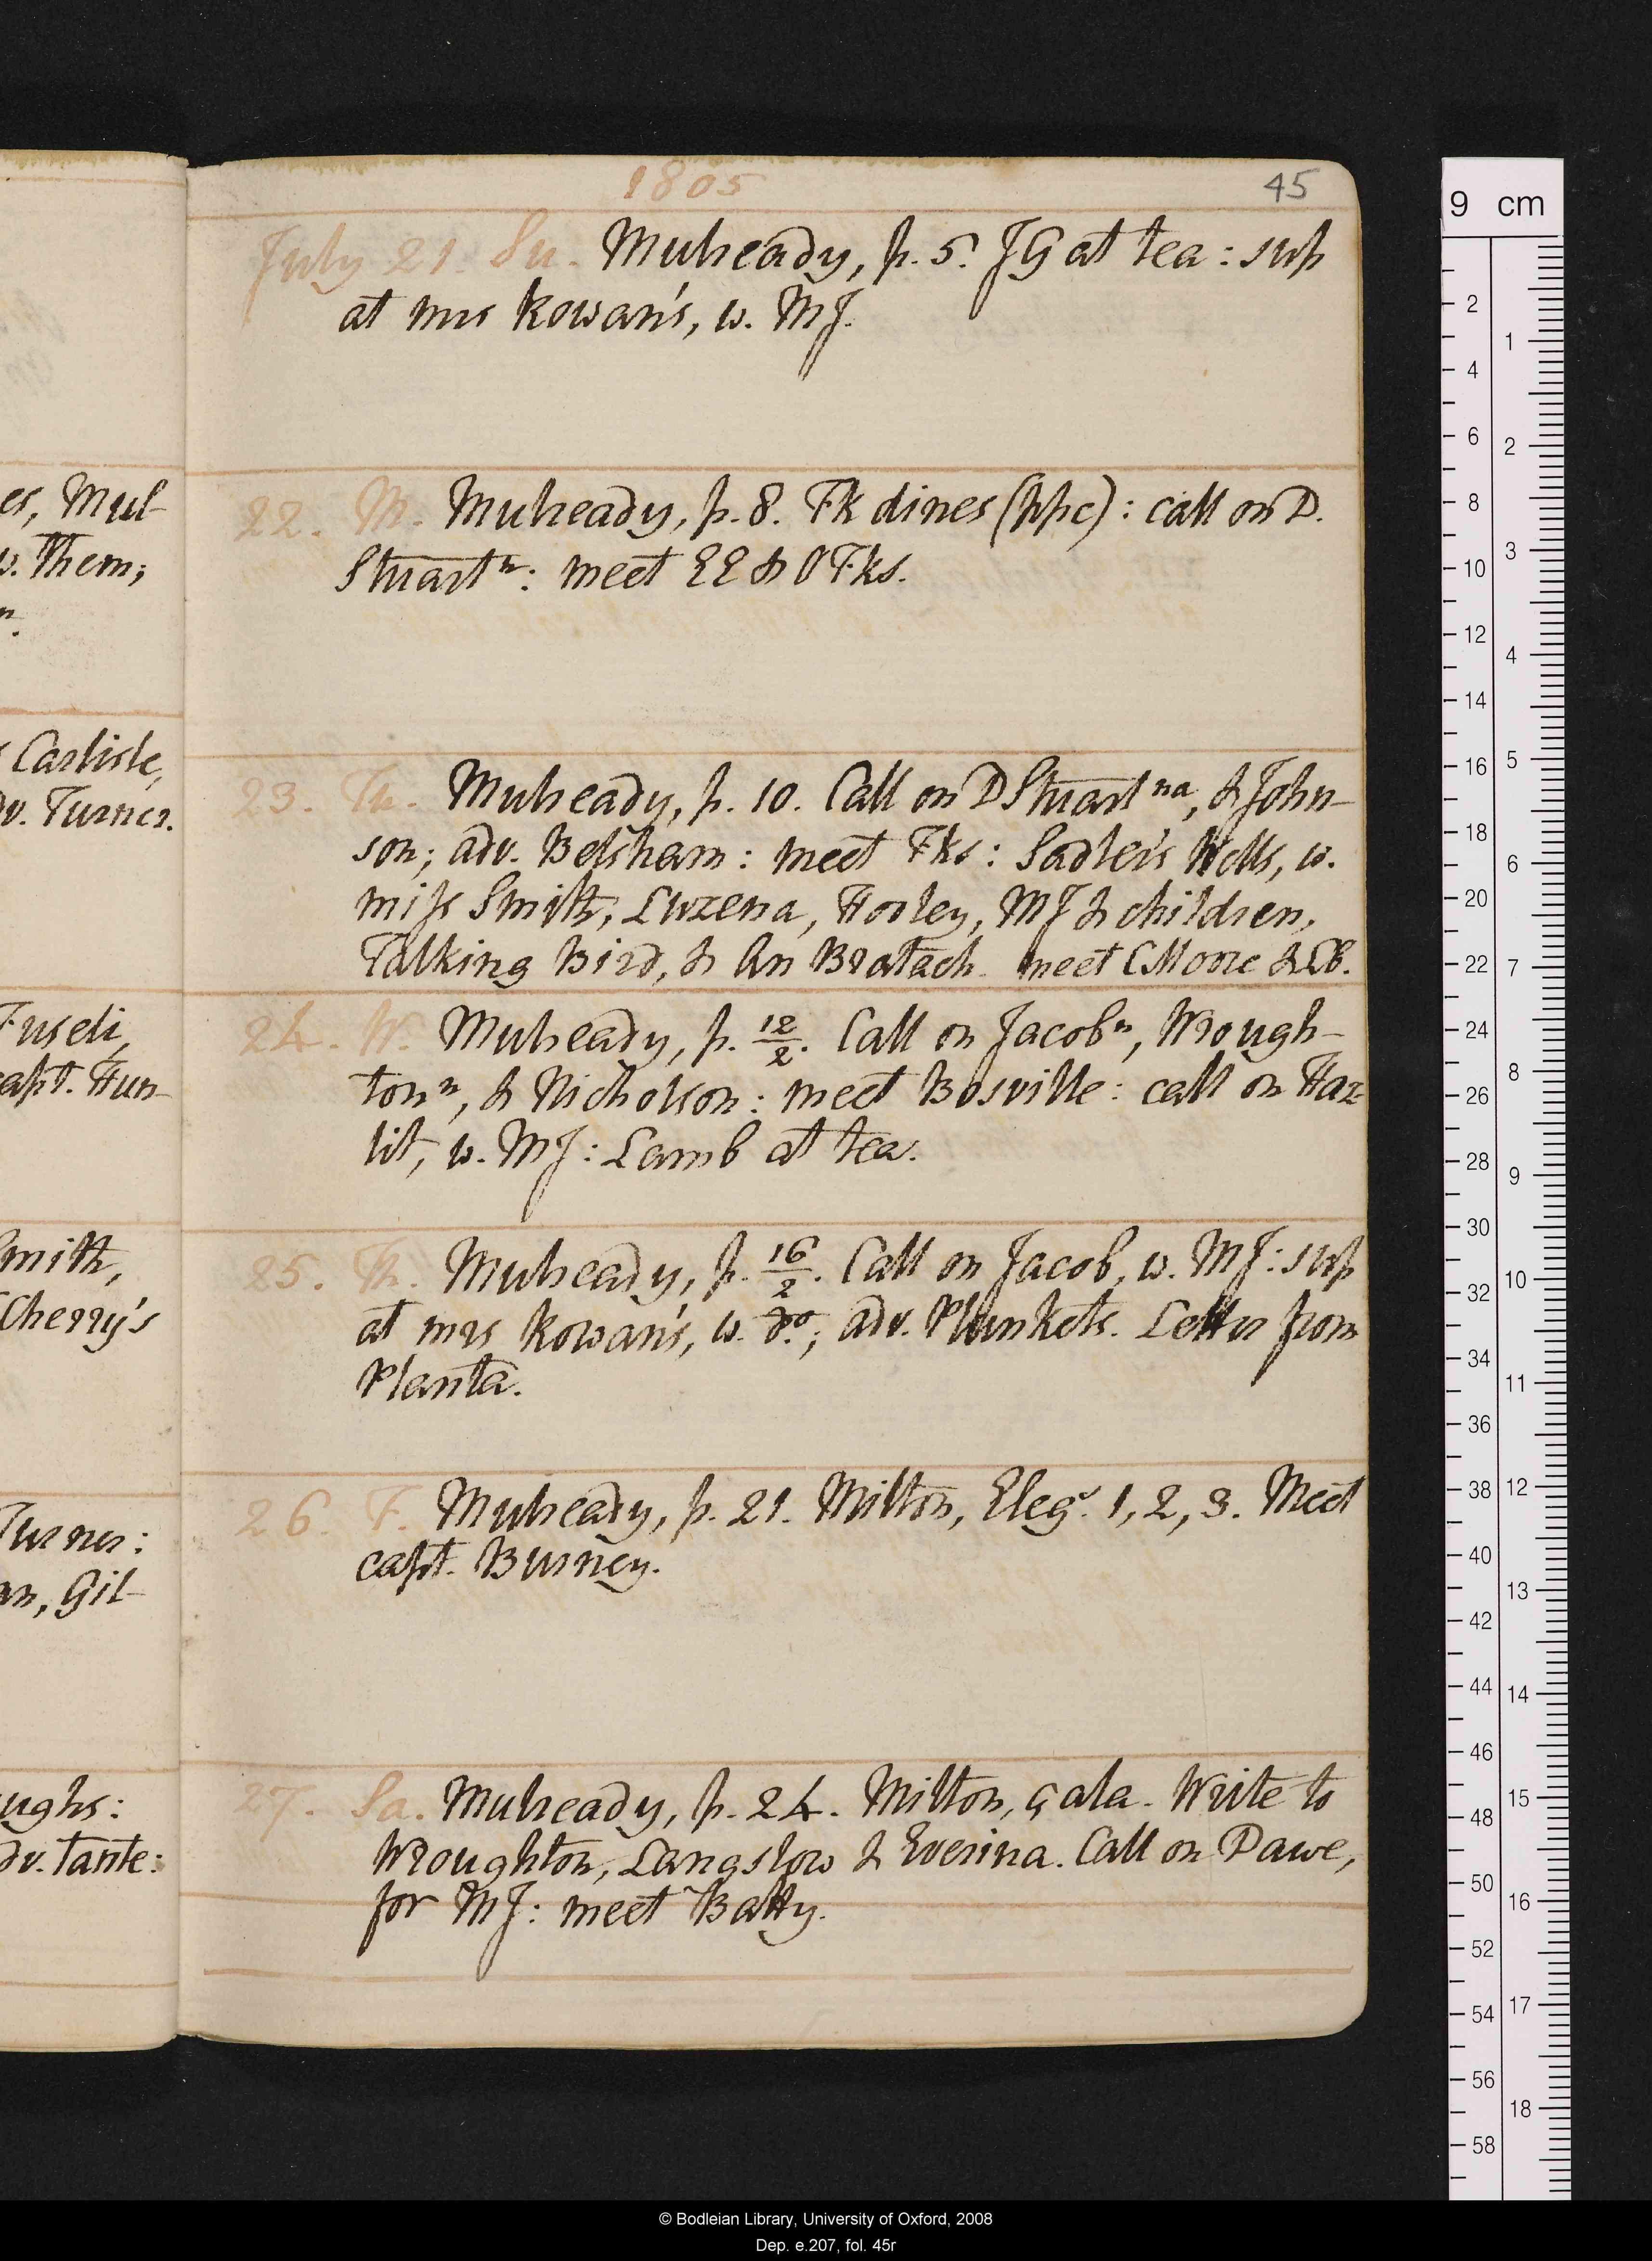 1805
45
July 21. Su. Mulready, p. 5. JG at tea: sup
at mrs Rowan's, w. MJ.
22. M. Mulready, p. 8. Fk dines (ppc): call on D.
Stuart n: meet EE & OFks.
23. Tu. Mulready, p. 10. Call on D Stuart na, & John-
son; adv. Belsham: meet Fks: Sadler's Wells, w.
miss Smith, Luzena, Horley, MJ & children,
Talking Bird, & An Bratach. meet CMoore &
24. W. Mulready, p. 12/2. Call on Jacob n, Wrough-
ton n, & Nicholson: meet Bosville: call on Haz-
lit, w. MJ: Lamb at tea.
25. Th. Mulready, p. 16/2. Call on Jacob, w. MJ: sup
at mrs Rowan's, w. do; adv. Plunkets. Letter from
Planta.
26. F. Mulready, p. 21. Milton, Eleg. 1, 2, 3. Meet
capt. Burney.
27. Sa. Mulready, p. 24. Milton, çala. Write to
Wroughton, Langslow & Everina. Call on Dawe,
for MJ: meet Batty.
es, Mul-
w. Them;
n.
Carlisle,
adv. Turner.
Fuseli,
capt. Hun-
Smith,
Cherry's
Turner:
an, Gil-
ughs:
adv. Tante:
9 cm
2
4
6
8
10
12
14
16
18
20
22
24
26
28
30
32
34
36
38
40
42
44
46
48
50
52
54
56
58
1
2
3
4
5
6
7
8
9
10
11
12
13
14
15
16
17
18
© Bodleian Library, University of Oxford, 2008
Dep. e.207, fol. 45r